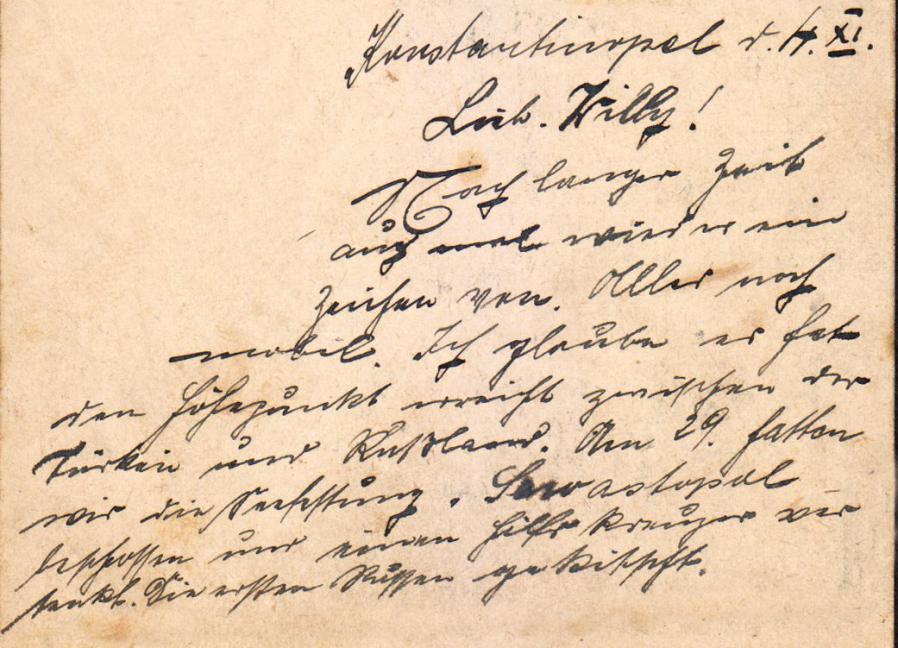 Konstantinopel d. 4. XI.
Lieb. Willy!
Nach langer Zeit
auch mal wieder ein
Zeichen von. Alles noch
mobil. Ich glaube es hat
den Höhepunkt erreicht zwischen der
Türkei und Rußland. Am 29. hatten
wir die Seefestung. Sewastopol
beschossen und einen Hilfskreuzer ver
senkt. Die ersten Russen gekitscht.